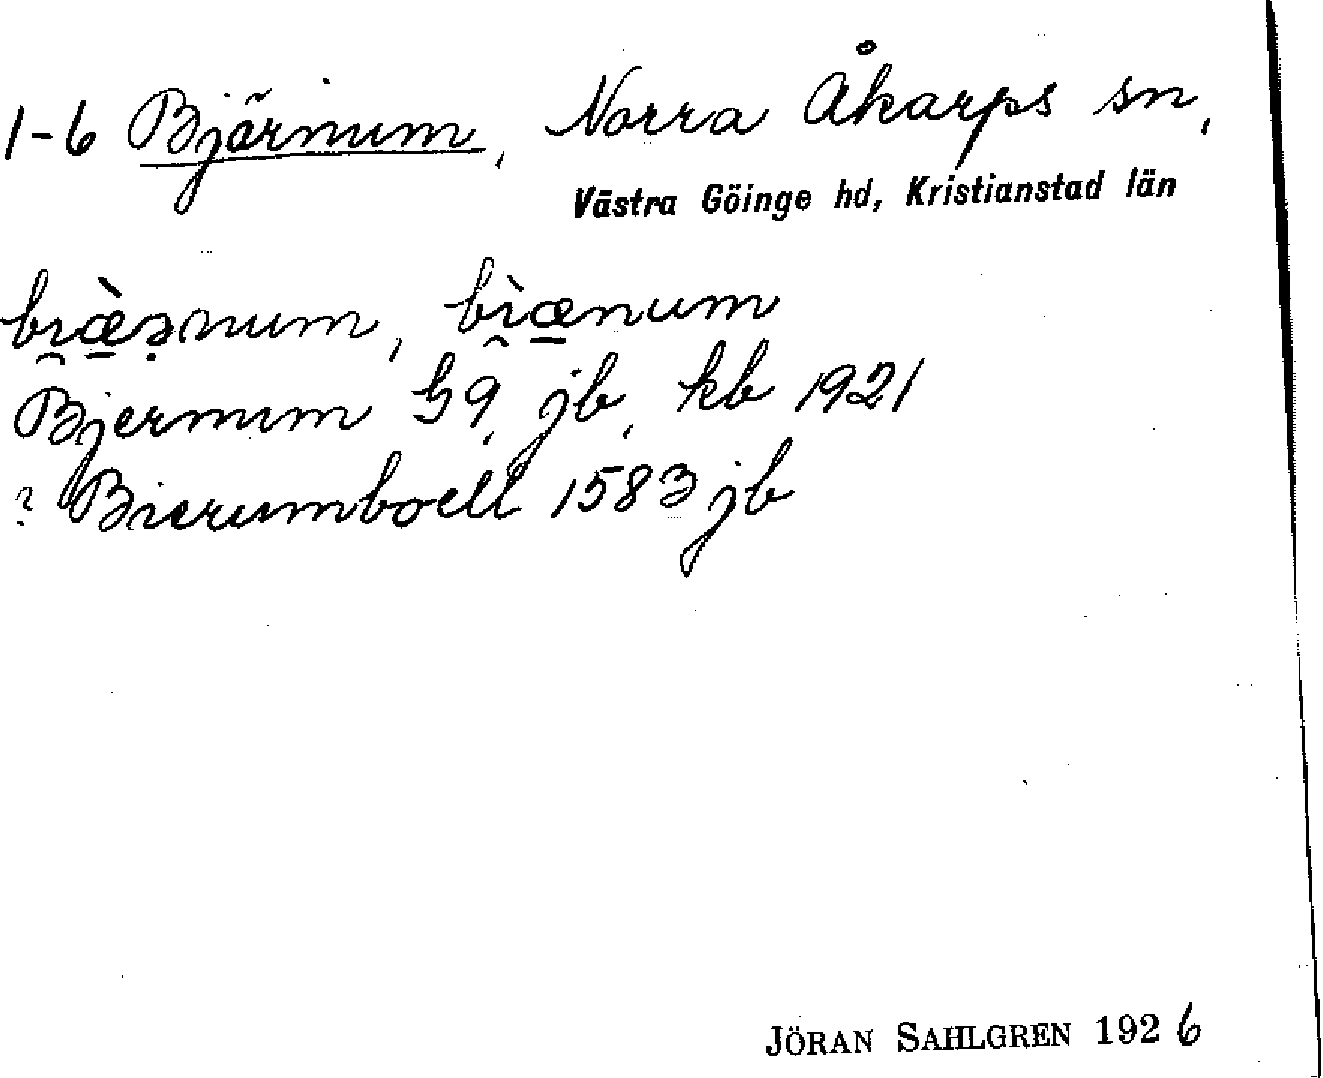 1-6 Bjärnum, Norra Åkarps sn,
Västra Göinge hd, Kristianstad län
bi̯æ̀ə̣num, bi̯æ̀num
Bjernum G9, jb, kb 1921
? Bierumboell 1583 jb
JÖRAN SAHLGREN 1926